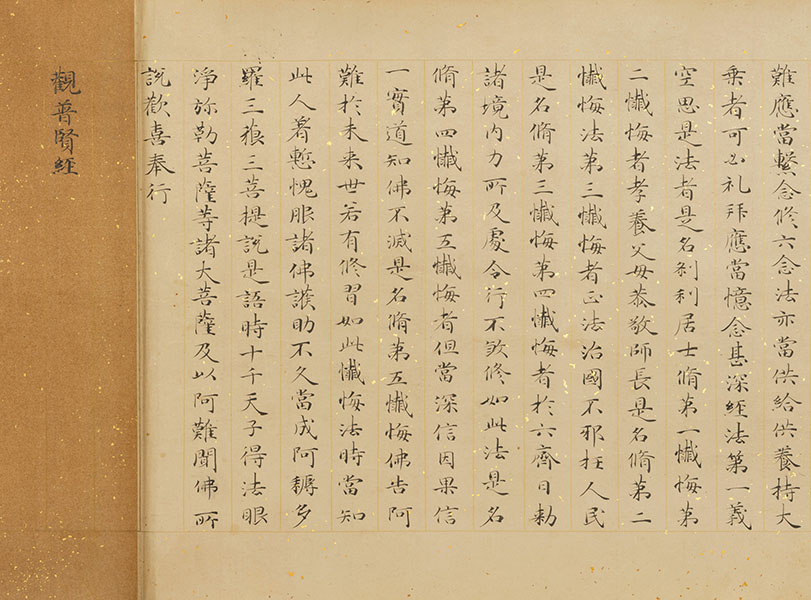 難應當繫念修六念法亦當供給供養持大
乗者可必礼拜應當憶念甚深經法第一義
空思是法者是名剎利居士脩第一懺悔第
二懺悔者孝養父母恭敬師長是名脩第二
懺悔法第三懺悔者正法治國不邪抂人民
是名脩第三懺悔第四懺悔者於六齊日勑
諸境内力所及處令行不煞修如此法是名
脩第四懺悔第五懺悔者但當深信因果信
一實道知佛不滅是名脩第五懺悔佛告阿
難於未来世若有修習如此懺悔法時當知
此人著慙愧服諸佛護助不久當成阿耨多
羅三藐三菩提說是語時十千天子得法眼
淨弥勒菩薩等諸大菩薩及以阿難聞佛所
說歡喜奉行
觀普賢經